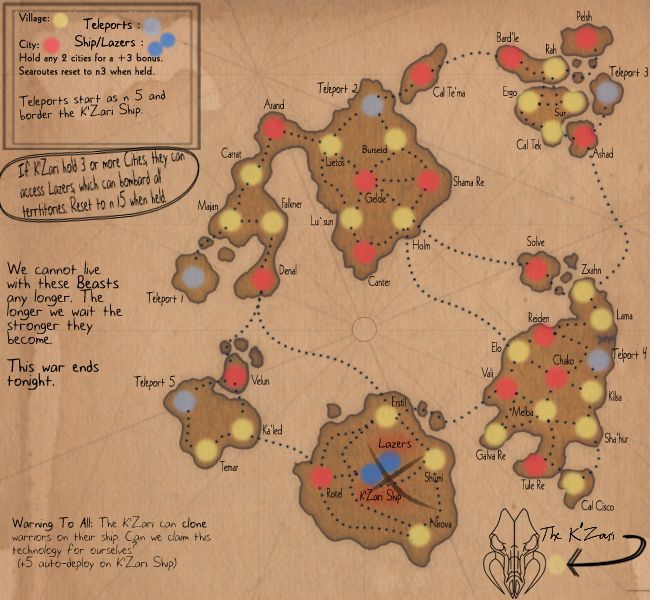 Village:
Teleports :
City:
Ship/Lazers :
Hold any 2 cities for a +3 bonus.
Searoutes reset to n3 when held.
Teleports start as n 5 and
border the K'Zari Ship.
If K'Zari hold 3 or more Cities, they can
access Lazers, which can bombard all
terrtitories. Reset to n 15 when held.
We cannot live
with these Beasts
any longer. The
longer we wait the
stronger they
become.
This war ends
tonight.
Pelsh
Bard'le
Rah
Teleport 3
Ergo
Sur
Cal Tek
Ashad
Cal Te'ma
Teleport 2
Arand
Lietos
Burseid
Carrat
Gelde
Shama Re
Majan
Falkner
Lu'sun
Holm
Canter
Denal
Teleport 1
Solve
Zxahn
Lama
Reiden
Elo
Chako
Telport 4
Vali
Kilsa
Melba
Galva Re
Sha'hur
Tule Re
Cal Cisco
Velun
Teleport 5
Ka'led
Temar
Erstil
Lazers
Shumi
Rotel
K'Zari Ship
Nirova
Warning To All: The K'Zari can clone
warriors on their ship. Can we claim this
technology for ourselves?
(+5 auto-deploy on K'Zari Ship)
The K'Zari